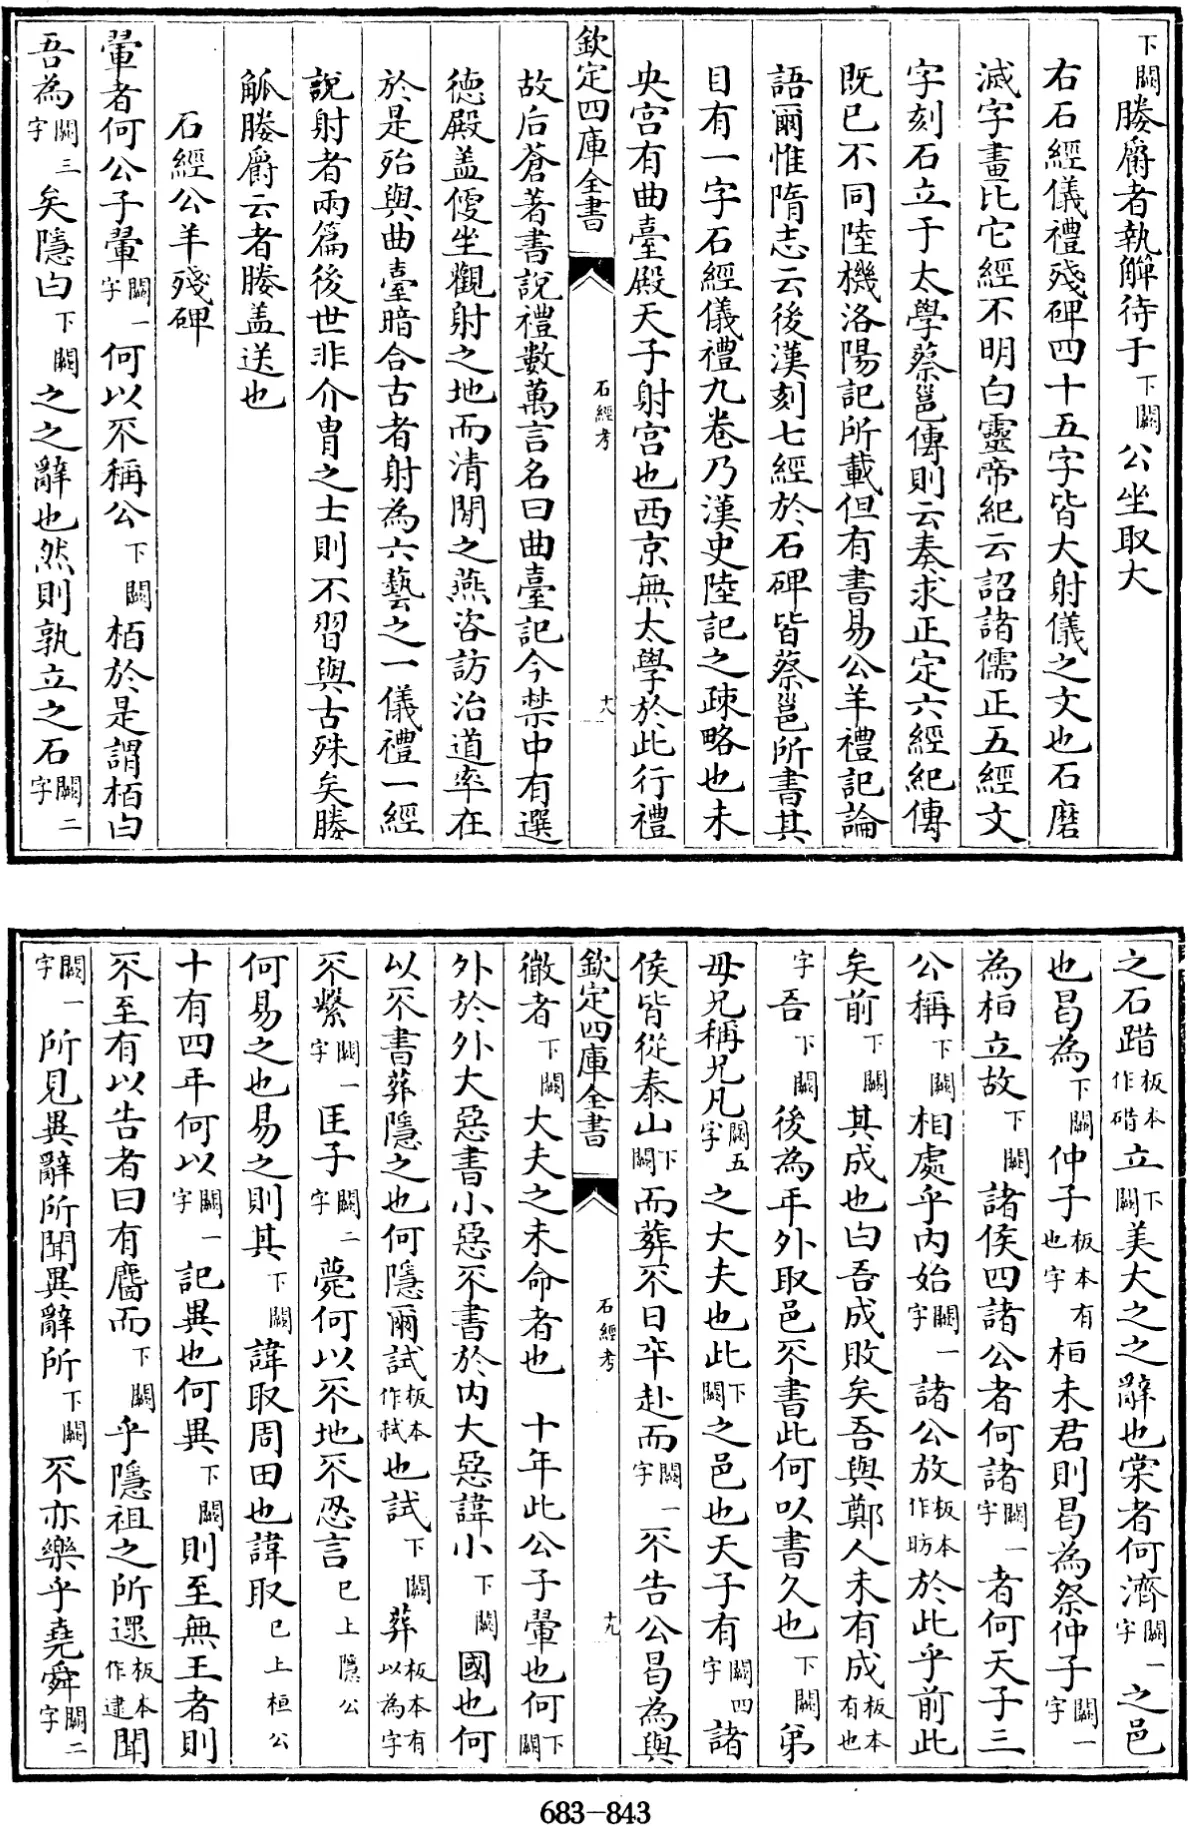 下闕媵爵者執觶待于下闕公坐取大
右石經儀禮殘碑四十五字皆大射儀之文也石磨
滅字畫比它經不明白靈帝紀云詔諸儒正五經文
字刻石立于太學蔡邕傳則云奏求正定六經紀傳
既已不同陸機洛陽記所載但有書易公羊禮記論
語爾惟隋志云後漢刻七經於石碑皆蔡邕所書其
目有一字石經儀禮九卷乃漢史陸記之疎略也未
央宫有曲臺殿天子射宫也西京無太學於此行禮
欽定四庫全書 石經考 十八
故后蒼著書說禮數萬言名曰曲臺記今禁中有選
德殿盖便坐觀射之地而清閒之燕咨訪治道率在
於是殆與曲臺暗合古者射為六藝之一儀禮一經
說射者兩篇後世非介胄之士則不習與古殊矣媵
觚媵爵云者媵盖送也
石經公羊殘碑
翬者何公子翬闕一字何以不稱公下闕栢於是謂栢曰
吾為闕三字矣隱曰下闕之之辭也然則孰立之石闕二字
之石踖板本作碏立下闕美大之之辭也棠者何濟闕一字之邑
也曷為下闕仲子板本有也字桓未君則曷為祭仲子闕一字
為桓立故下闕諸侯四諸公者何諸闕一字者何天子三
公稱下闕相處乎内始闕一字諸公放板本作昉於此乎前此
矣前下闕其成也曰吾成敗矣吾與鄭人未有成板本有也
字吾下闕後為年外取邑不書此何以書久也下闕弟
母兄稱兄凡闕五字之大夫也此下闕之邑也天子有闕四字諸
侯皆從泰山下闕而葬不日卒赴而闕一字不告公曷為與
欽定四庫全書 石經考 十九
微者下闕大夫之未命者也 十年此公子翬也何下闕
外於外大惡書小惡不書於内大惡諱小下闕國也何
以不書葬隱之也何隱爾試板本作弒也試下闕葬板本有以為字
不繫闕一字匡子闕二字薨何以不地不忍言已上隱公
何易之也易之則其下闕諱取周田也諱取已上桓公
十有四年何以闕一字記異也何異下闕則至無王者則
不至有以告者曰有麕而下闕乎隱祖之所還板本作逮聞
闕一字所見異辭所聞異辭所下闕不亦樂乎堯舜闕二字
683-843